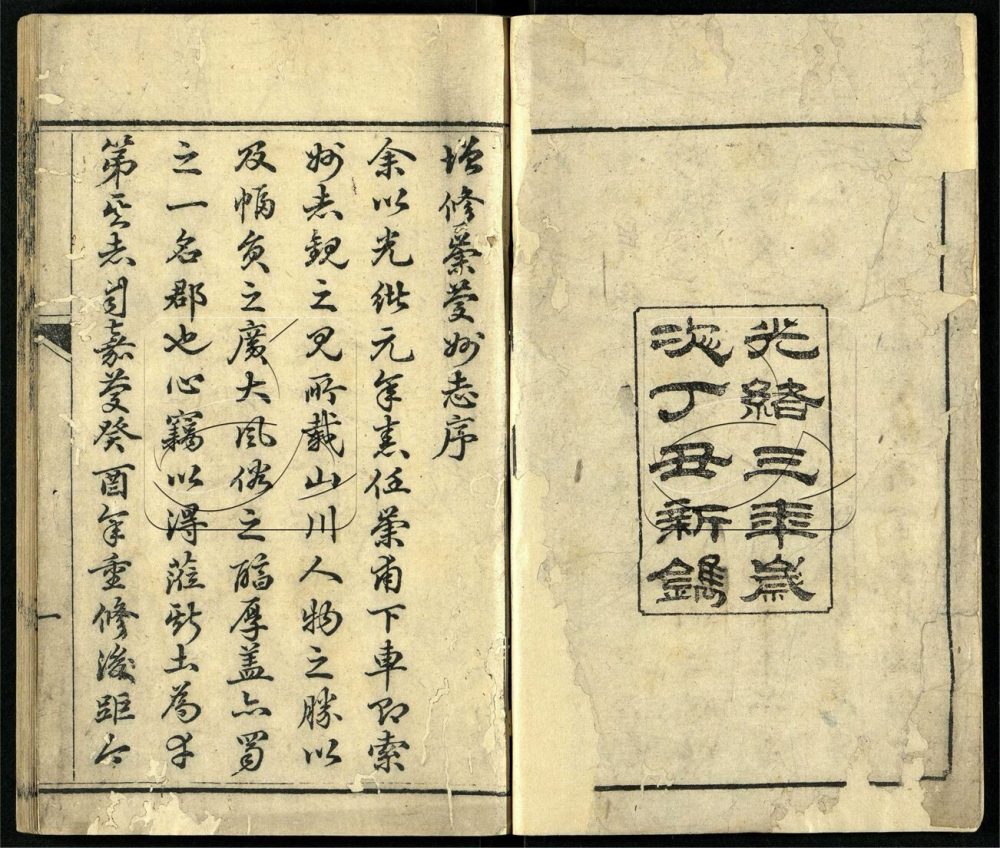 光緒三年歲
次丁丑新鐫
增修崇慶州志序
余以光緒元年任崇甫下車即索
州志觀之見所載山川人物之勝以
及幅員之廣大風俗之醇厚蓋亦蜀
之一名郡也心竊以得蒞斯土為幸
第是志自嘉慶癸酉年重修後距今
一